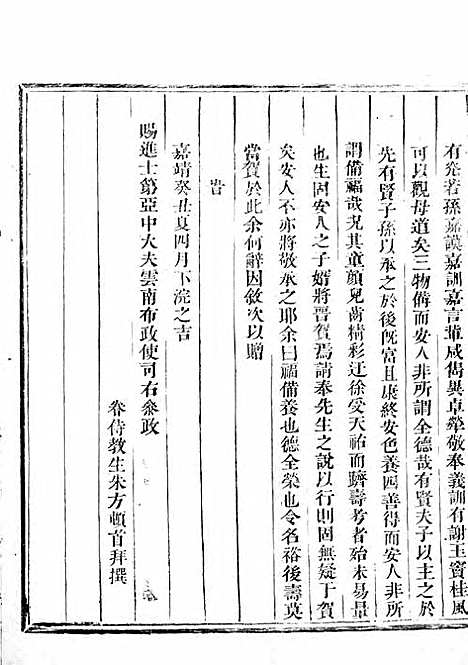 有発若孫嘉謨嘉訓嘉言輩咸儁異卓犖敬奉義訓有謝玉竇桂風
可以觀母道矣三物備而安人非所謂全德哉有賢夫子以主之於
先有賢子孫以承之於後旣富且康終安色養四善得而安人非所
謂備福哉況其童顏兒齒精彩迂徐受天祐而躋壽考者始未易量
也生固安人之子婿將晋賀焉請奉先生之說以行則固無疑于賀
矣安人不亦將敬承之耶余曰福備養也德全榮也令名裕後壽莫
尚賀於此余何辭因敘次以贈
旹
嘉靖癸丑夏四月下浣之吉
賜進士第亞中大夫雲南布政使司右叅政
眷侍教生朱方頓首拜撰